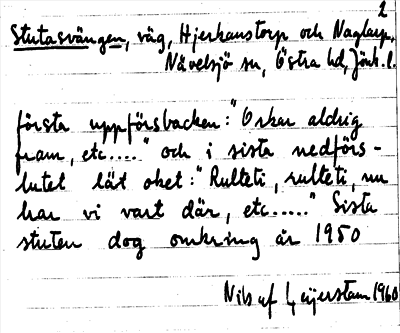 2
Stutasvängen, väg, Hjerkanstorp och Naglarp,
Nävelsjö sn, Östra hd, Jönk. l.
första uppförsbacken: "Orkar aldrig
fram, etc....." och i sista nedförs-
lutet lät oket: "Rulleti, rulleti, nu
har vi vart där, etc....." Sista
stuten dog omkring år 1950
Nils af Geijerstam 1960